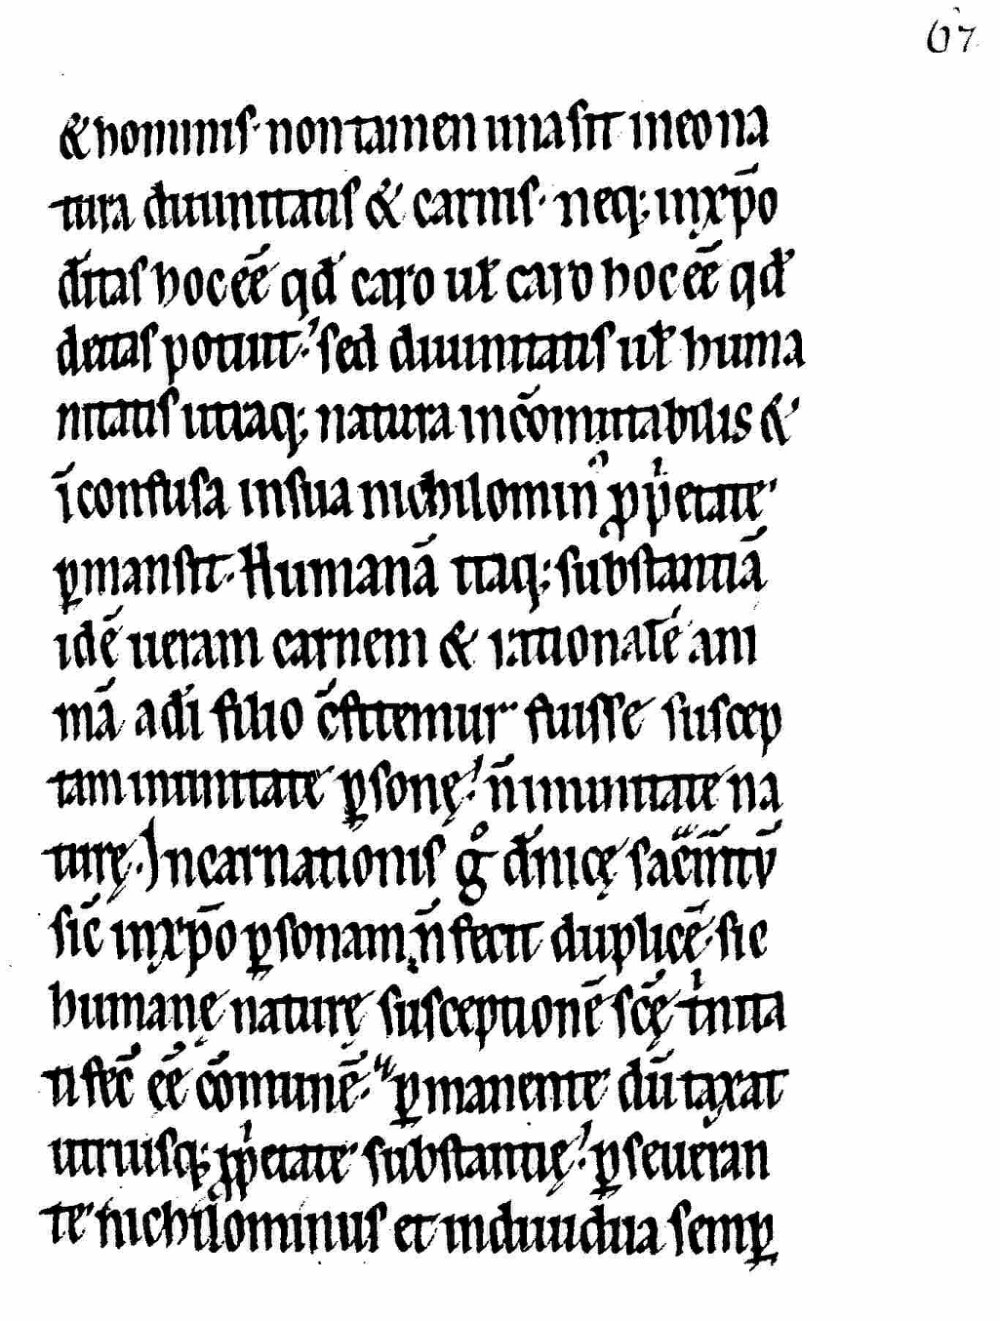 67
& hominis· non tamen una sit in eo na
tura diuinitatis & carnis· neq; in xp̄o
dīitas hoc eē̄ qđ caro ut̵ caro hoc eē̄ qđ
deitas potuit·' sed diuinitatis ut̵ huma
nitatis utraq; natura incōmutabilis &
īconfusa in sua nichilomin᾿ ꝓp̍etate·
ꝑmansit· Humanā itaq; substantiā
idē ueram carnem & rationalē ani
mā a dī filio c̄fitemur fuisse suscep
tam in unitate ꝑsonę·' n̄ in unitate na
turę· Incarnationis gͦ dn̄icę sacm̄tū
sic̄ in xp̄o ꝑsonam n̄ fecit duplicē· sic
humanę naturę susceptionē scę̄ t̍nita
ti fec̄ eē̄ cōmunē· ꝑmanente dū taxat
utriusq; ꝓp̍etate substantię·' ꝑseueran
te nichilominus et indiuidua semꝑ